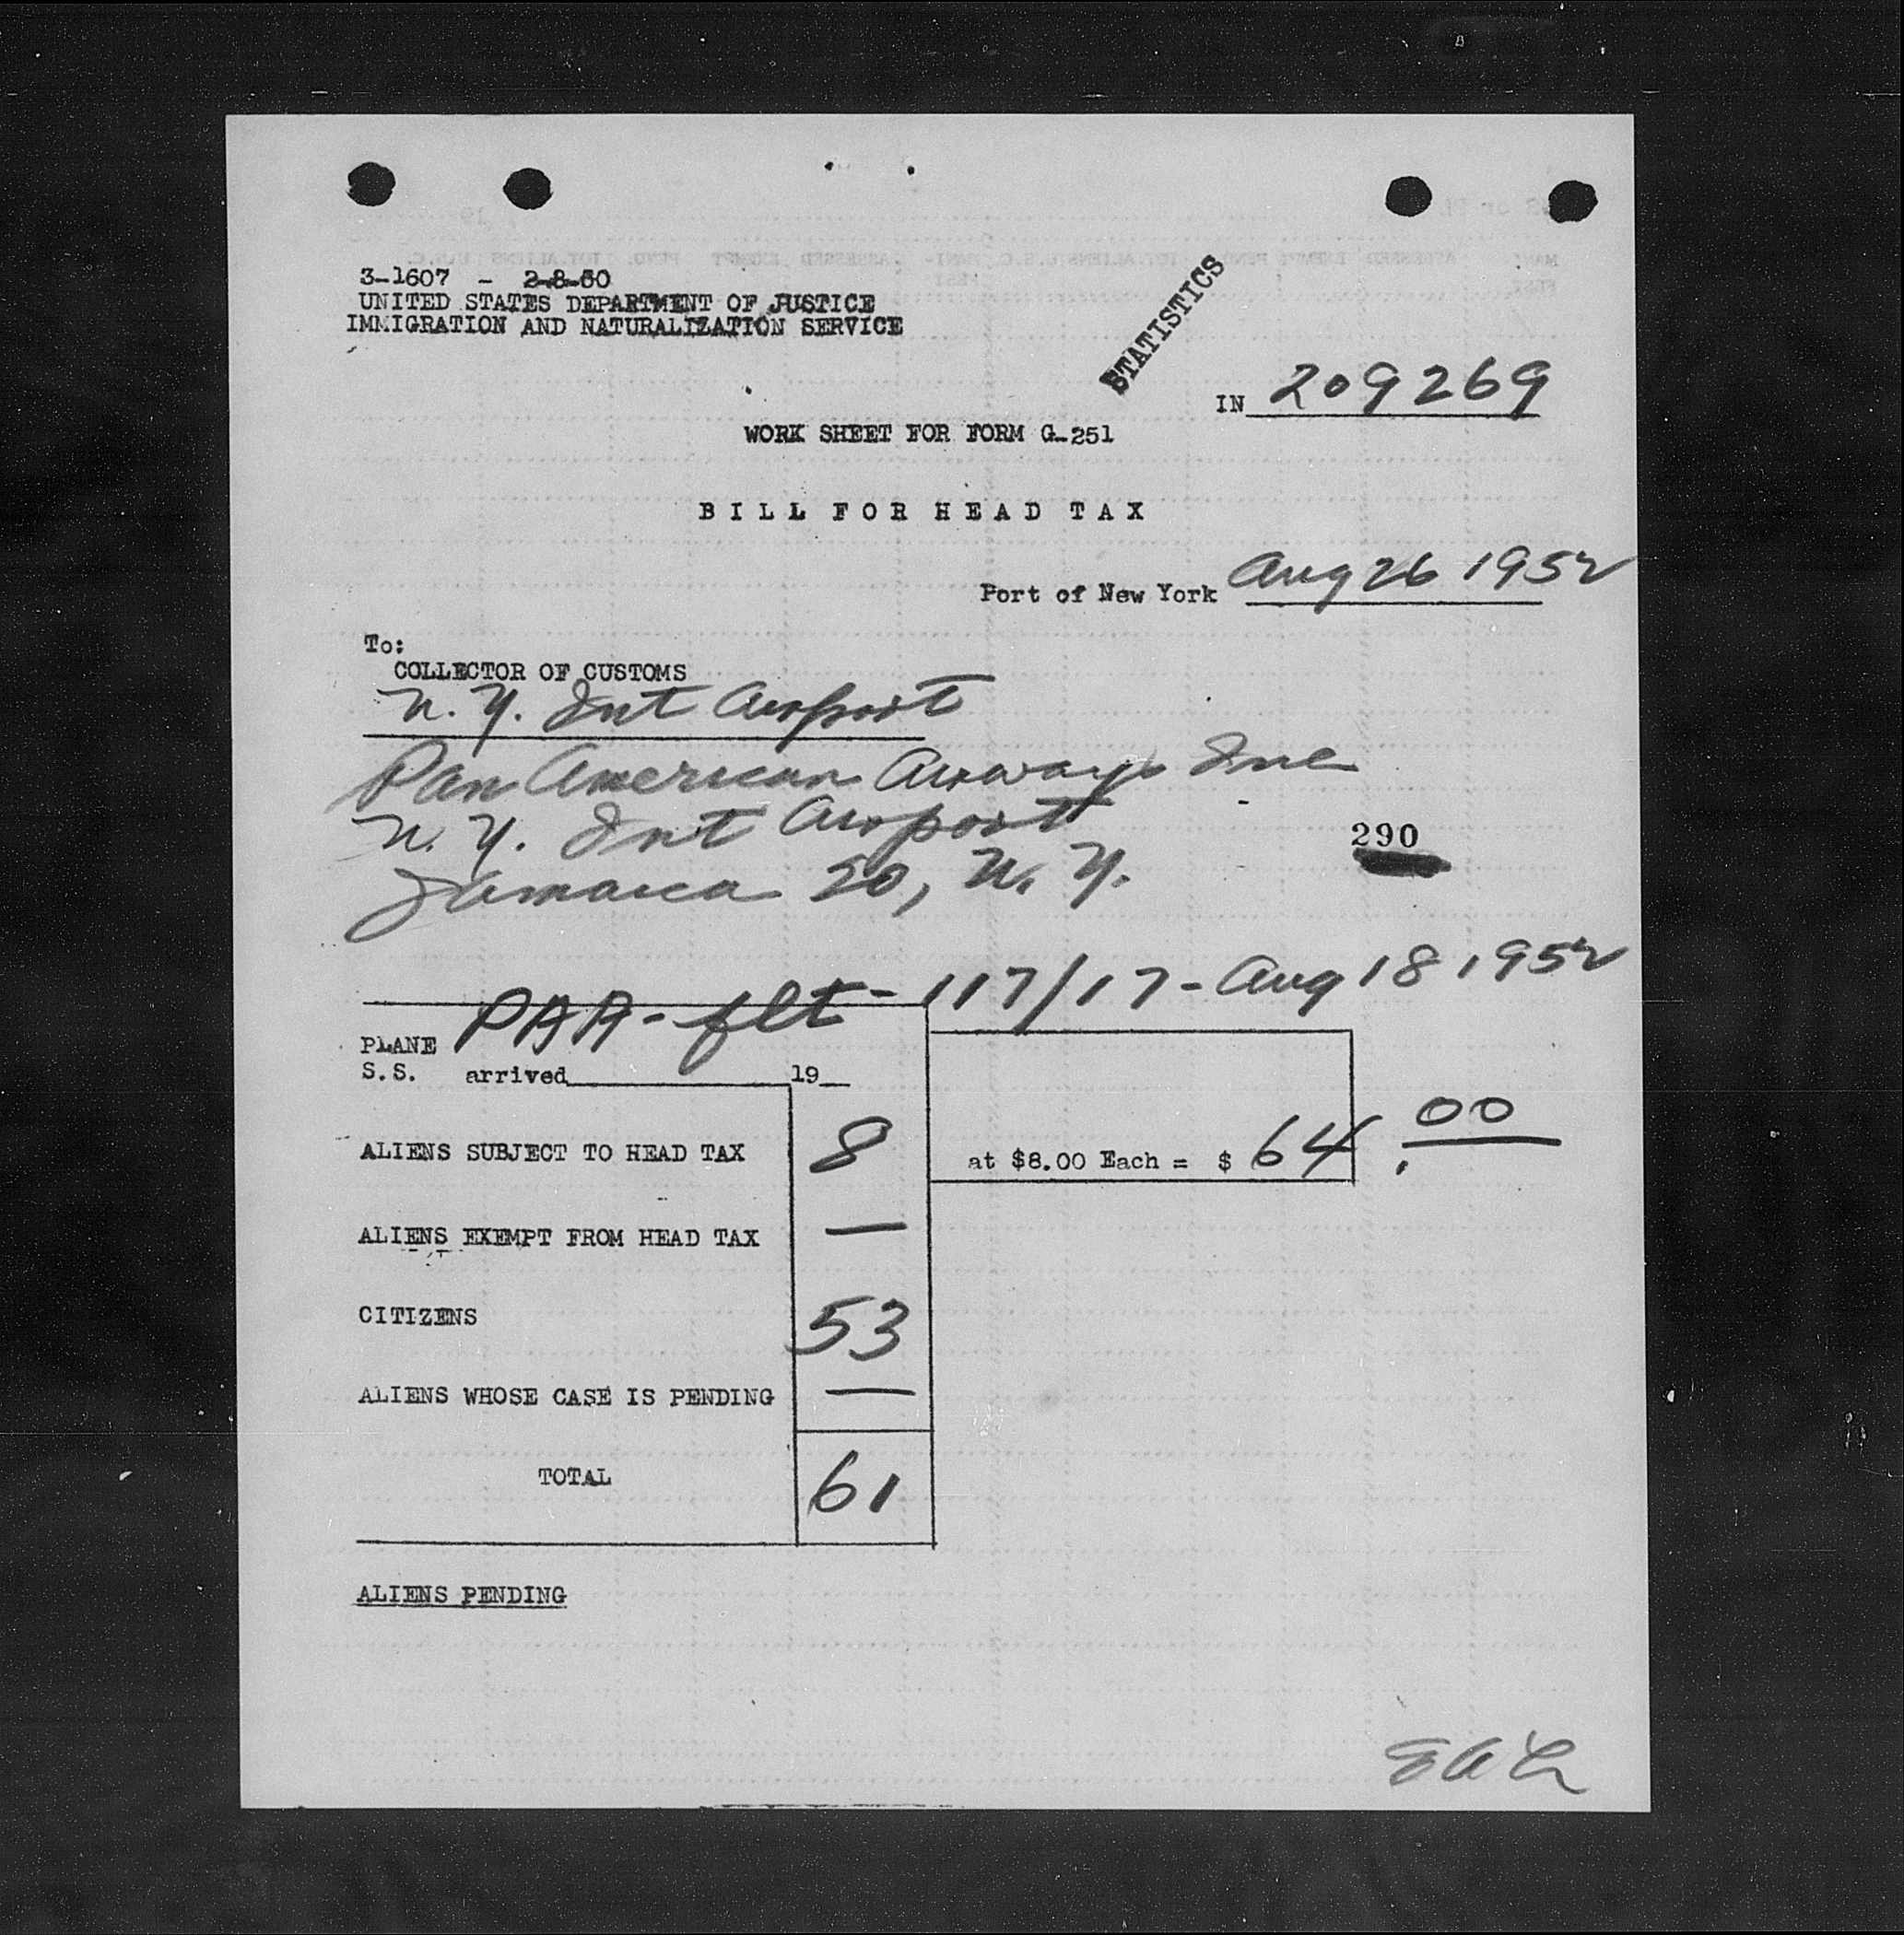 3-1607 - 2-8-50
UNITED STATES DEPARTMENT OF JUSTICE
IMMIGRATION AND NATURALIZATION SERVICE
STATISTICS
IN 209269
WORK SHEET FOR FORM G-251
BILL FOR HEAD TAX
Port of New York Aug 26 1952
To:
COLLECTOR OF CUSTOMS
N. Y. Int Airport
Pan American Airways Inc
N. Y. Int Airport
290
Jamaica 20, N. Y.
PAA - flt - 117/17 - Aug 18 1952
PLANE
S.S. arrived 19
ALIENS SUBJECT TO HEAD TAX 8 at $8.00 Each = $ 64.00
ALIENS EXEMPT FROM HEAD TAX —
CITIZENS 53
ALIENS WHOSE CASE IS PENDING —
TOTAL 61
ALIENS PENDING